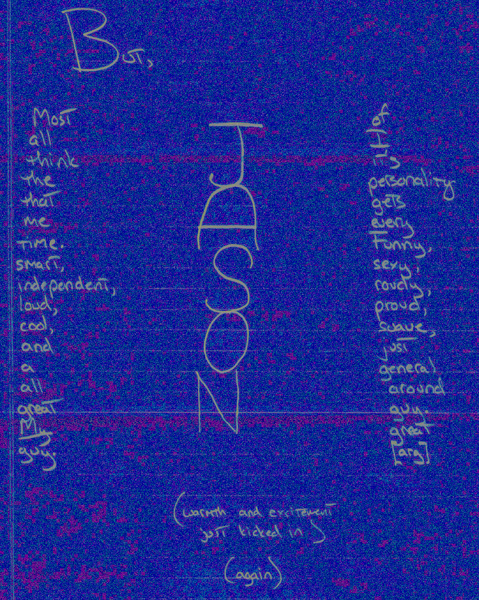 But,
Most
all
think
the
that
me
time.
smart,
independent,
loud,
cool,
and
a
all
great
My
guy.
JASON
of
I
it's
personality
gets
every
Funny,
sexy,
rowdy,
proud,
suave,
just
general
around
guy.
great
[arg]
(warmth and excitement
just kicked in)
(again)